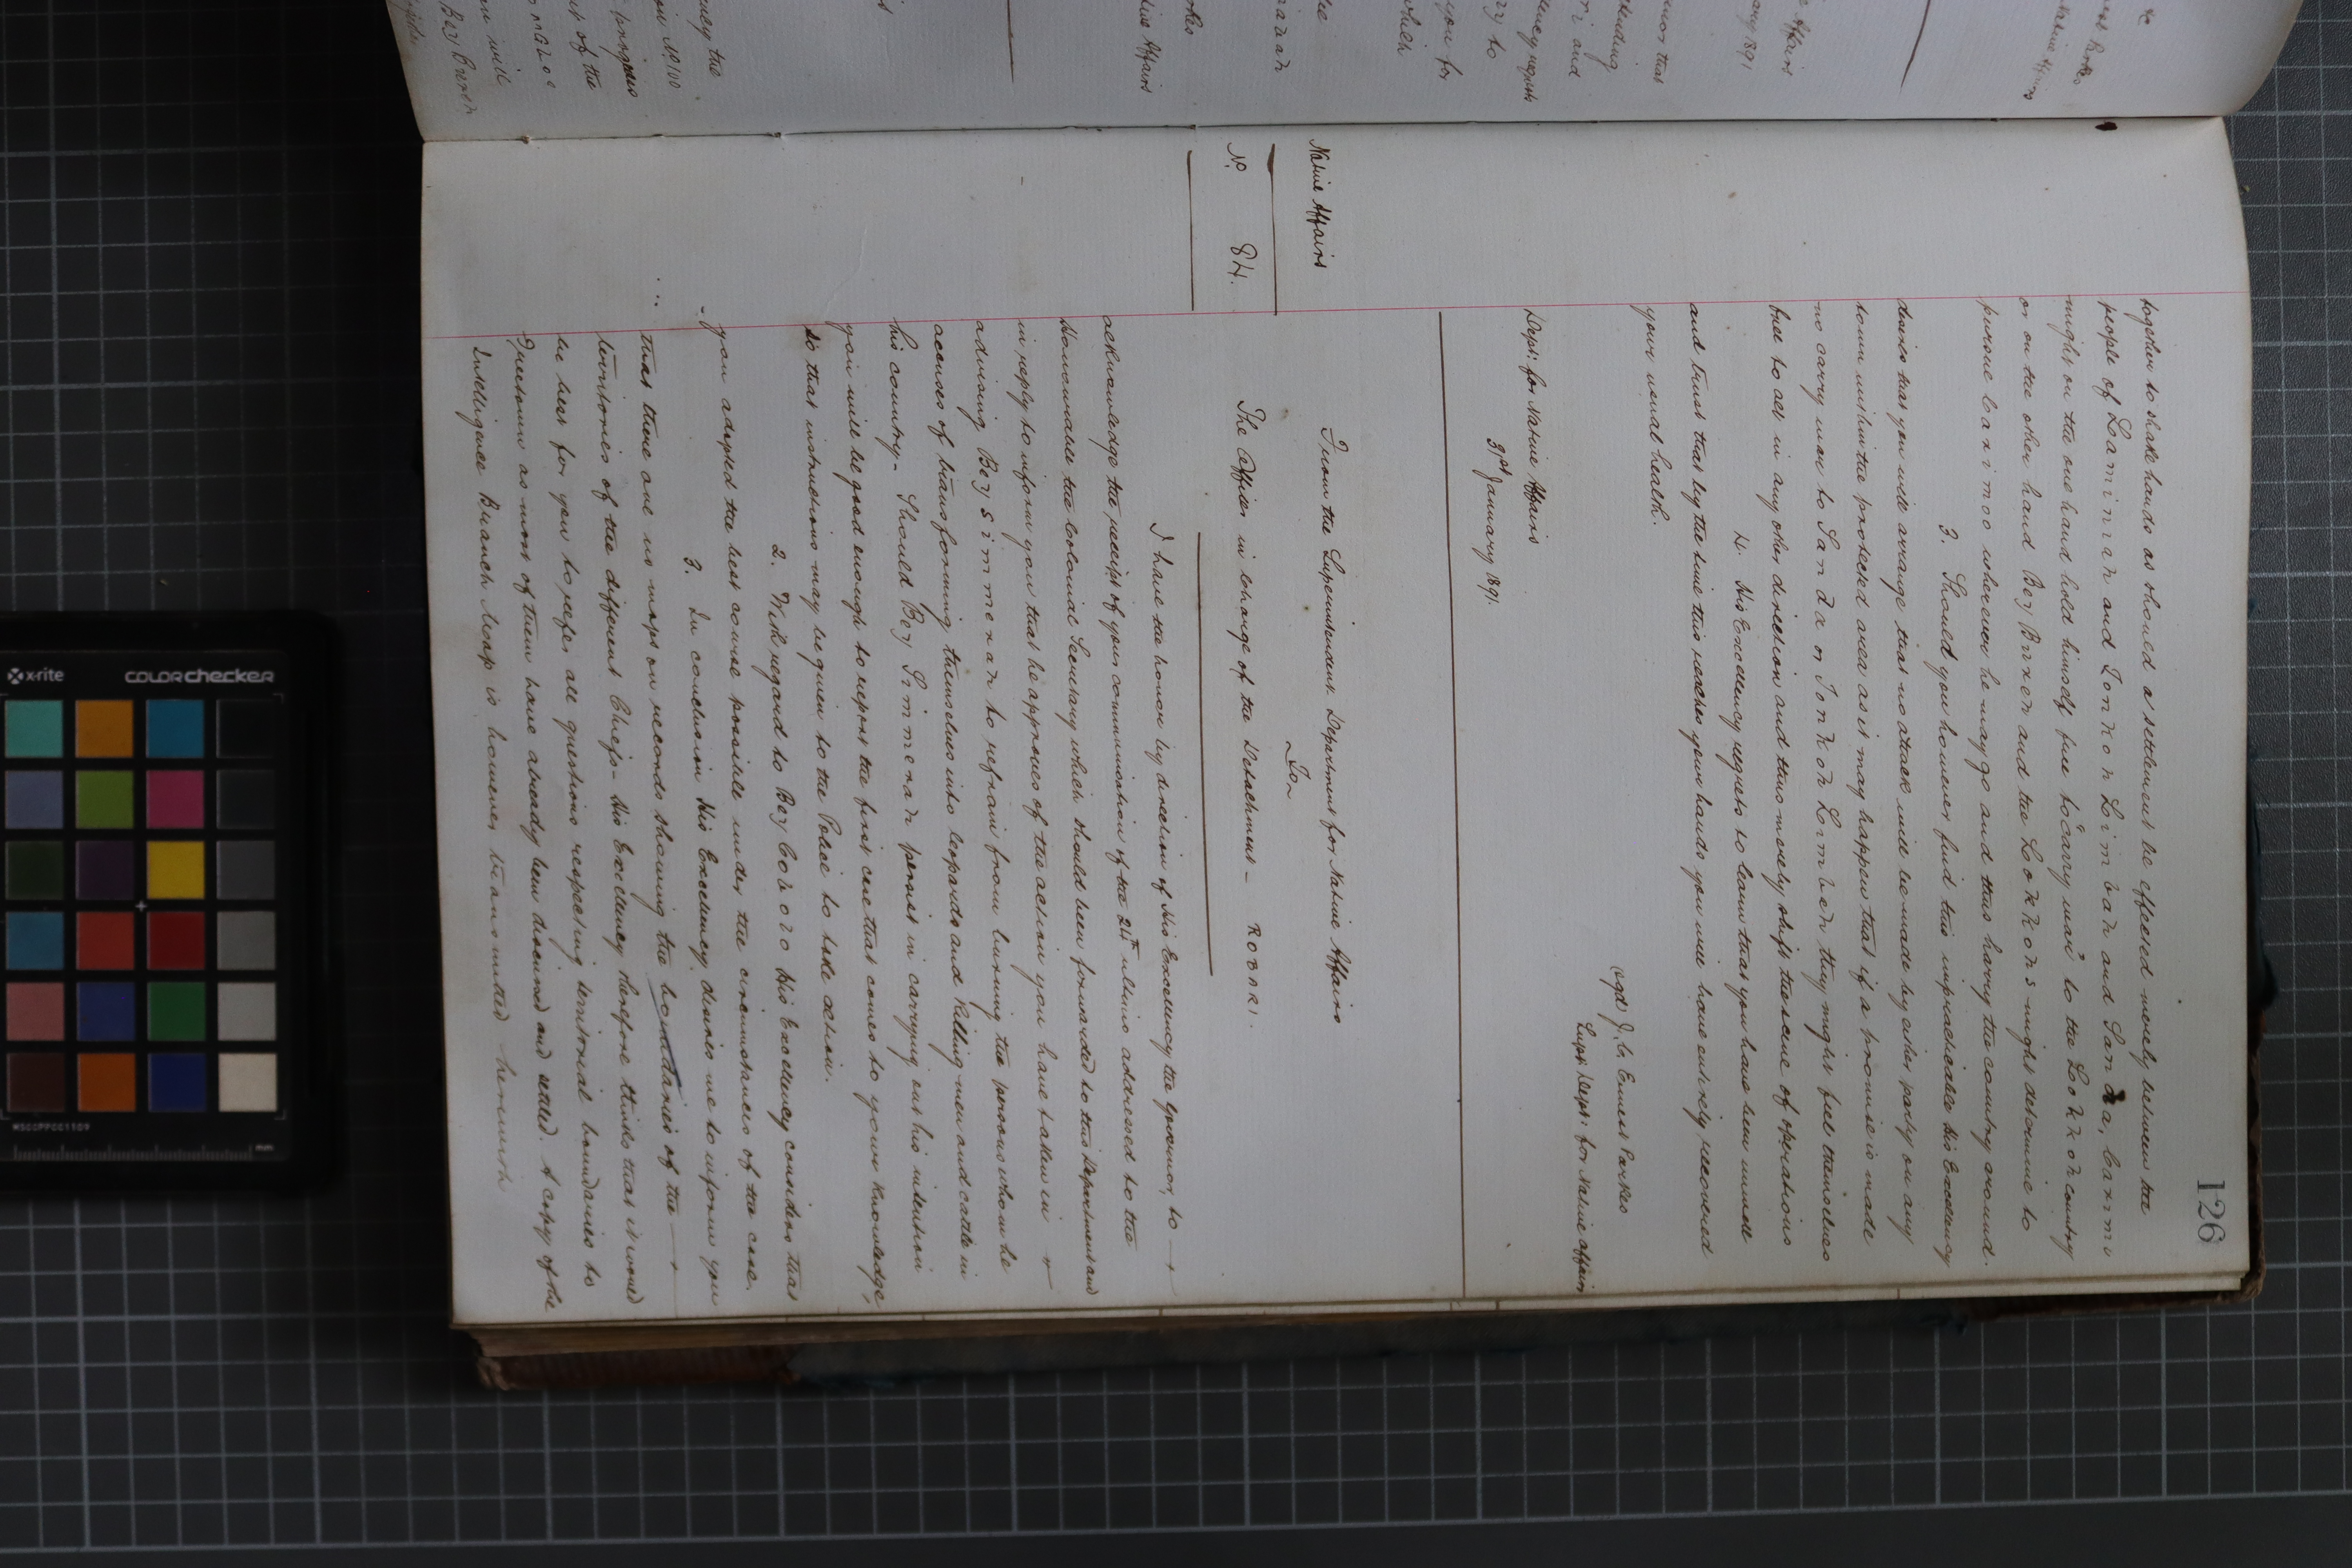 126
together to shake hands as should a settlement be effected merely between the
people of Laminah and Tonkoh Limbah and Sanda,
might on the one hand hold himself free to carry war to the Lokkoh country
or on the other hand Bey Burch and the Lokkohs might determine to
pursue Carimoo wherever he may go and thus harry the country around.
3. Should you however find this impracticable His Excellency
desires that you will arrange that no attack will be made by either party on any
town within the protected area as it may happen that if a promise is made
no carry war to Sanda or Tonkoh Limbah they might feel themselves
free to act in any other direction and thus merely shift the scene of operations
4. His Excellency regrets to learn that you have been unwell
and trusts that by the time this reaches your hands you will have entirely recovered
your usual health.
(sgd) J. C. Ernest Parkes
Supt: Dept: for Native Affairs
Dept: for Native Affairs
31st January 1891.
Native Affairs
From the Superintendent. Department for Native Affairs
To
No 84.
The Officer in charge of the Detachment - ROBORI.
I have the honour by direction of His Excellency the Governor, to
acknowledge the receipt of your communication of the 24th ultimo addressed to the
Honourable the Colonial Secretary which should been forwarded to this Department and
in reply to inform you that he approves of the action you have taken in
advising Bey Simmerah to refrain from burning the persons whom he
accuses of transforming themselves into leopards and killing men and cattle in
his country - Should Bey Simmerah persist in carrying out his intention
you will be good enough to report the first case that comes to your knowledge,
so that instructions may be given to the Police to take action.
2. With regard to Bey His Excellency considers that
you adopted the best course possible under the circumstances of the case.
3. In conclusion His Excellency desires me to inform you
that there are no maps on records showing the boundaries of the
territories of the different Chiefs - His Excellency therefore thinks that it would
be best for you to refer all questions respecting territorial boundaries to
Freetown as most of them have already been discussed and settled. A copy of the
Intelligence Branch Map is however transmitted herewith